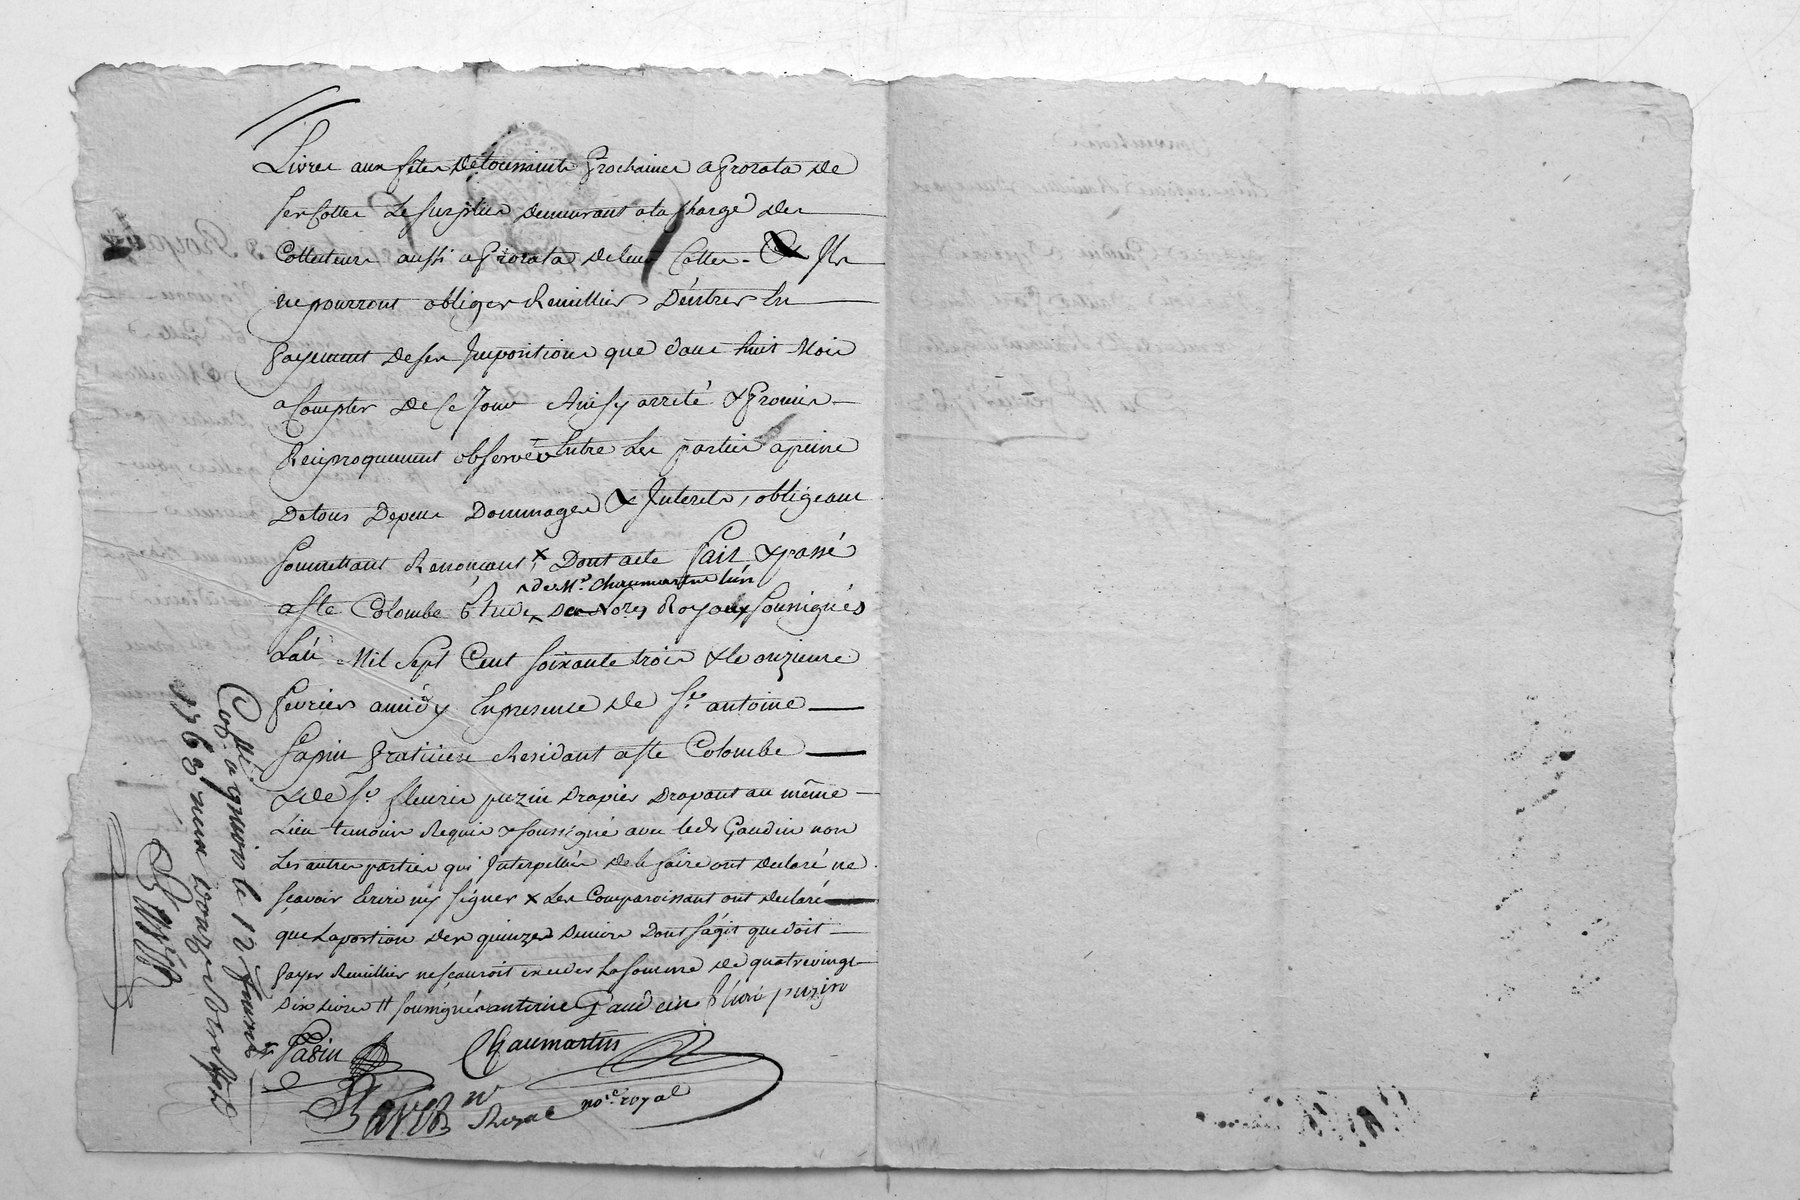 Livres aux fêtes detoussaints Prochaines aprorata de
ses Cottes Le surplus demeurant ala charge des
Collecteurs aussi aprorata deleurs Cottes. & Ils
nepourront obliger Reuillier D'entrer En
payement deses Impositions que dans huit Mois
aCompter de Ce Jour Ainsy arrêté & promis
Reciproquement observer Entre Les parties apeine
Detous Depens Dommages & Interets, obligeant
Soumettant Renonçant x Dont acte Fait & passé
aSte Colombe Etude x Des Nores Royaux Soussignés
x de Me. Chaumartin L'un
L'an Mil Sept Cent soixante trois & le onzieme
fevrier amidy Enpresence de Sr. antoine
Papin praticien Residant aSte Colombe
& de Sr. fleurie puzin Drapier Drapant au même
Lieu temoins Requis & soussigné avec ledt Gaudin non
Les autres parties qui Interpellées de le faire ont declaré ne
sçavoir Ecrire ny signer x Les Comparoissant ont declaré
que Laportion des quinzes deniers Dont s'agit que doit
payer Reuillier nesçauroit exceder Lasomme de quatrevingt
Dix Livres # soussignés antoine Gaudein fluri puzin
Papin Chaumartin
Ravet nre Royal nore. royal
Coll. a qnins le 12 fevrier
1763 reçu